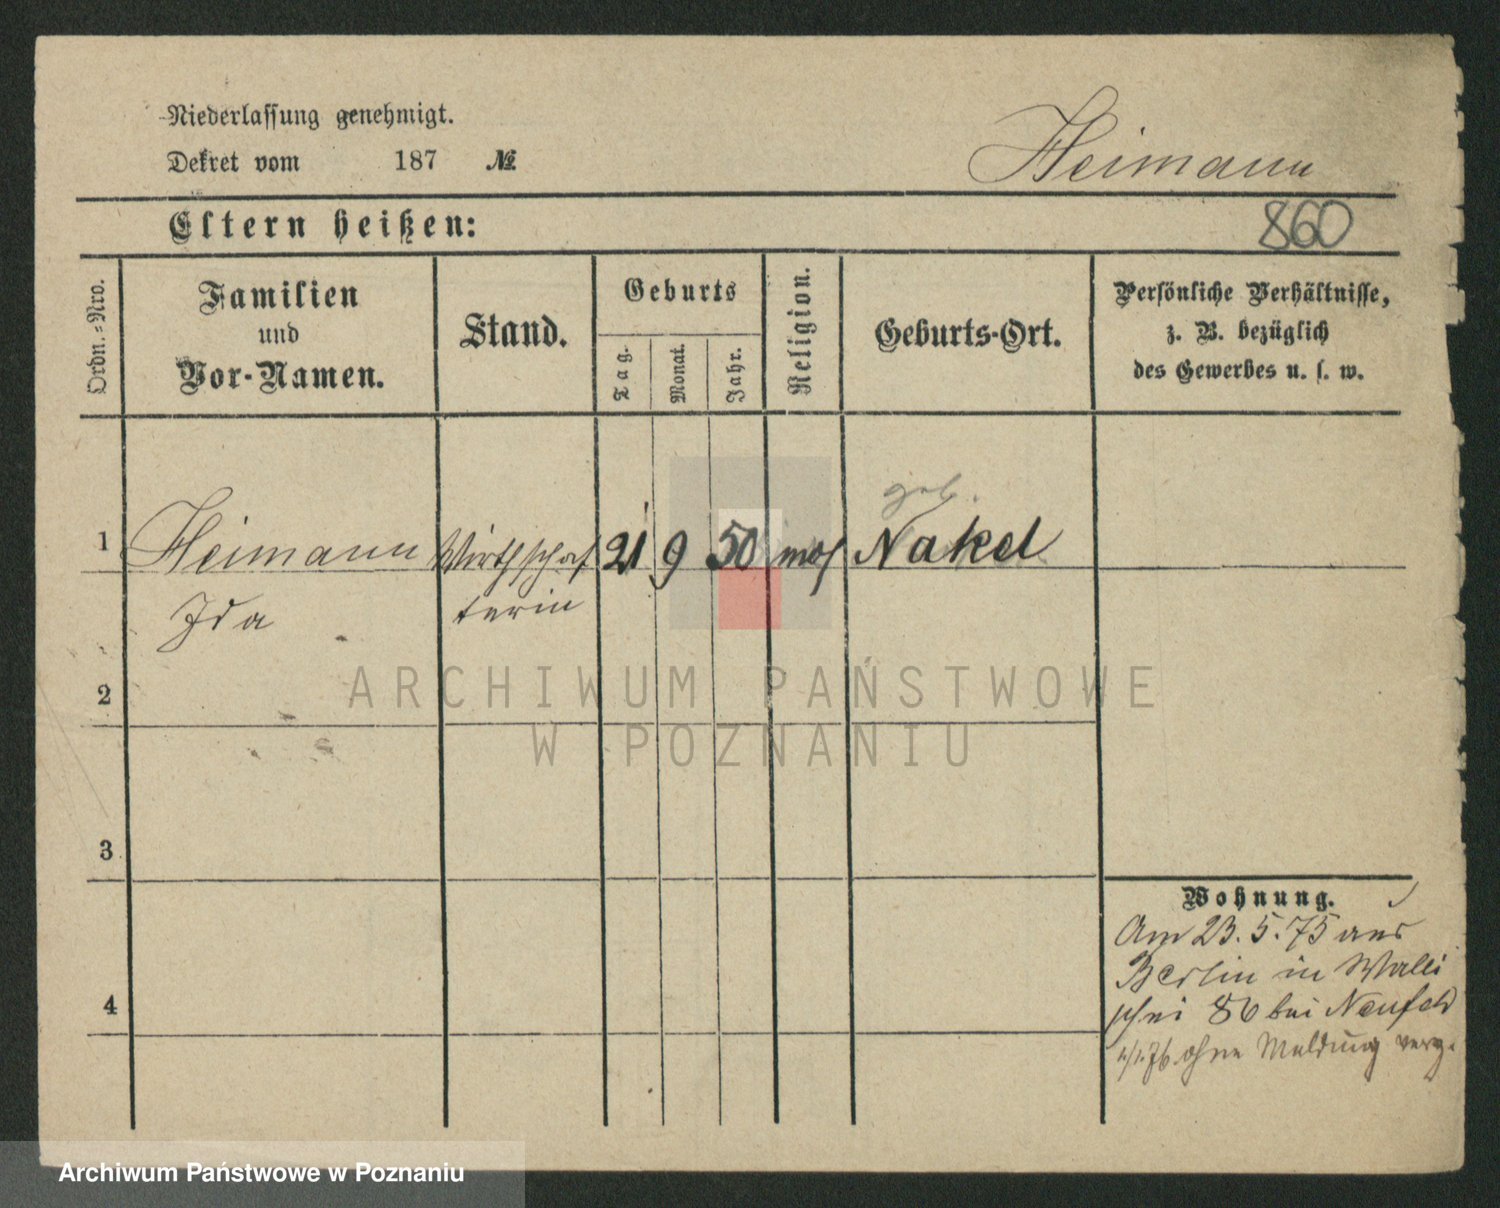 Niederlassung genehmigt.
Dekret vom 187 №
Heimann
Eltern heißen:
860
Ordn.=Nro.
Familien
und
Vor-Namen.
Stand.
Geburts
Tag.
Monat.
Jahr.
Religion.
Geburts-Ort.
Persönliche Verhältnisse,
z. B. bezüglich
des Gewerbes u. s. w.
geb.
1 Heimann Wirthschaf 21 9 50 mos Nakel
Ida terin
2
ARCHIWUM PAŃSTWOWE
W POZNANIU
3
Wohnung.
Am 23. 5. 75 aus
Berlin in Walli
schei 86 bei Neufeld
4
ohne Meldung verz.
Archiwum Państwowe w Poznaniu